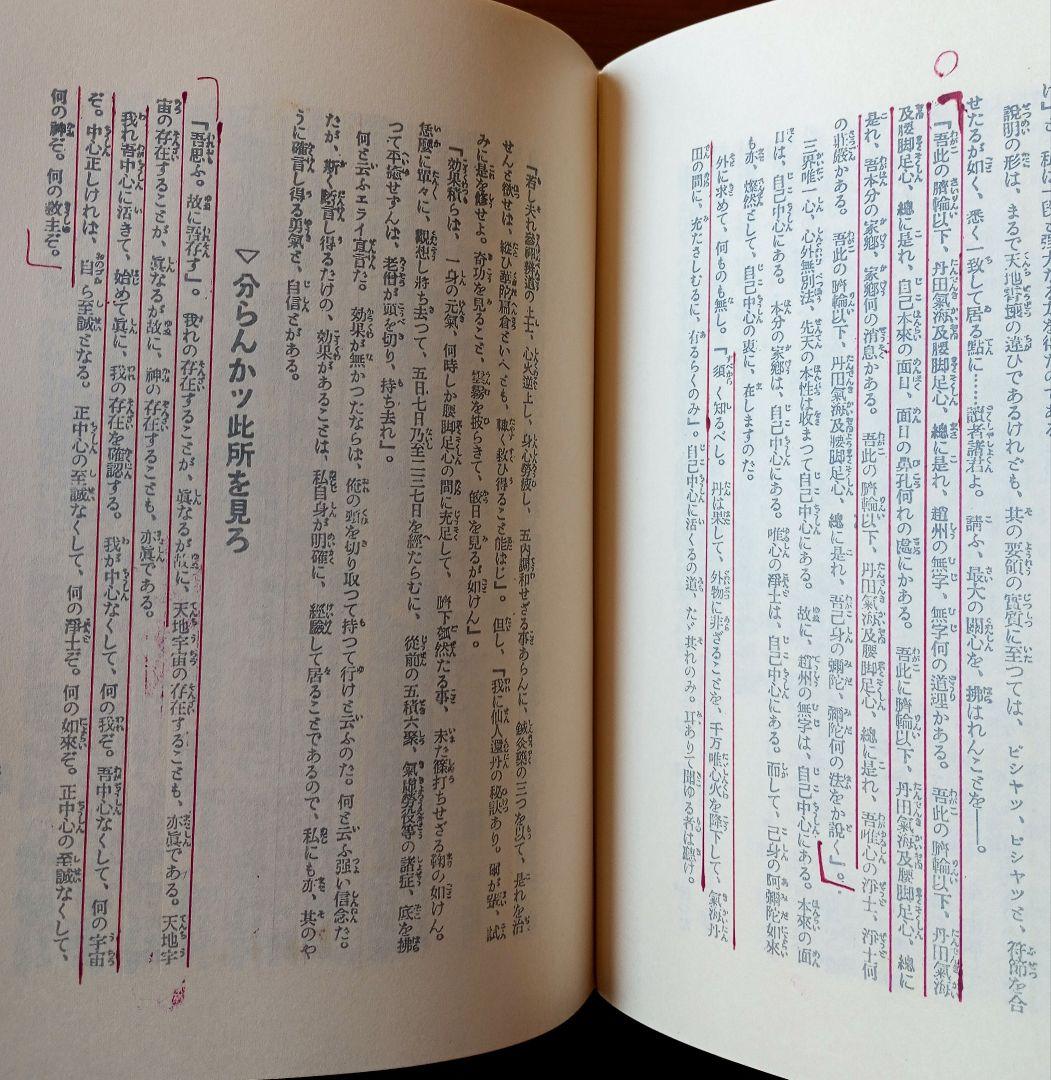 説明の形は、まるで天地雲壌の違ひであるけれども、其の要領の實質に至つては、ピシヤツ、ピシヤツと、符節を合
せたるが如く、悉く一致して居る點に……讀者諸君よ。請ふ、最大の關心を、拂はれんことを――。
『吾此の臍輪以下、丹田氣海及腰脚足心、總に是れ、趙州の無字、無字何の道理かある。吾此の臍輪以下、丹田氣海
及腰脚足心、總に是れ、自己本來の面目、面目の鼻孔何れの處にかある。吾此に臍輪以下、丹田氣海及腰脚足心、總に
是れ、吾本分の家郷、家郷何の消息かある。吾此の臍輪以下、丹田氣海及腰脚足心、總に是れ、吾唯心の淨土、淨土何
の莊嚴かある。吾此の臍輪以下、丹田氣海及腰脚足心、總に是れ、吾己身の彌陀、彌陀何の法をか說く』。
三界唯一心、心外無別法、先天の本性は收まつて自己中心にある。故に、趙州の無字は、自己中心にある。本來の面
目は、自己中心にある。本分の家郷は、自己中心にある。唯心の淨土は、自己中心にある。而して、己身の阿彌陀如來
も亦、燦然として、自己中心の裏に、在しますのだ。
外に求めて、何ものも無し。『須く知るべし。丹は果して、外物に非ざることを、千万唯心火を降下して、氣海丹
田の間に、充たさしむるに、有るらくのみ』。自己中心に活くるの道、たゞ其れのみ。耳ありて聞ゆる者は聽け。
『若し夫れ參禪辨道の上士、心火逆上し、身心勞疲し、五内調和せざる事あらんに、鍼灸藥の三つを以て、是れを治
せんと欲せば、縱ひ華陀扁倉といへども、輙く救ひ得ること能はじ』。但し、『我に仙人還丹の秘訣あり。爾が輩、試
みに是を修せよ。奇功を見ること、雲霧を披らきて、皎日を見るが如けん』。
『効果積らば、一身の元氣、何時しか腰脚足心の間に充足して、臍下瓠然たる事、未だ篠打ちせざる鞠の如けん。
恁麼に單々に、觀想し將ち去つて、五日七日乃至二三七日を經たらむに、從前の五積六聚、氣虛勞役等の諸症、底を拂
つて平癒せずんば、老僧が頭を切り、持ち去れ』。
何と云ふエライ宣言だ。効果が無かつたならば、俺の頭を切り取つて持つて行けと云ふのだ。何と云ふ强い信念だ。
だが、斯く斷言し得るだけの、効果があることは、私自身が明確に、經驗して居ることであるので、私にも亦、其のや
うに確言し得る勇氣と、自信とがある。
▽分らんかッ此所を見ろ
『吾思ふ。故に吾存す』。我れの存在することが、眞なるが故に、天地宇宙の存在することも、亦眞である。天地宇
宙の存在することが、眞なるが故に、神の存在することも、亦眞である。
我れ吾中心に活きて、始めて眞に、我の存在を確認する。我が中心なくして、何の我ぞ。吾中心なくして、何の宇宙
ぞ。中心正しければ、自ら至誠となる。正中心の至誠なくして、何の淨土ぞ。何の如來ぞ。正中心の至誠なくして、
何の神ぞ。何の救主ぞ。